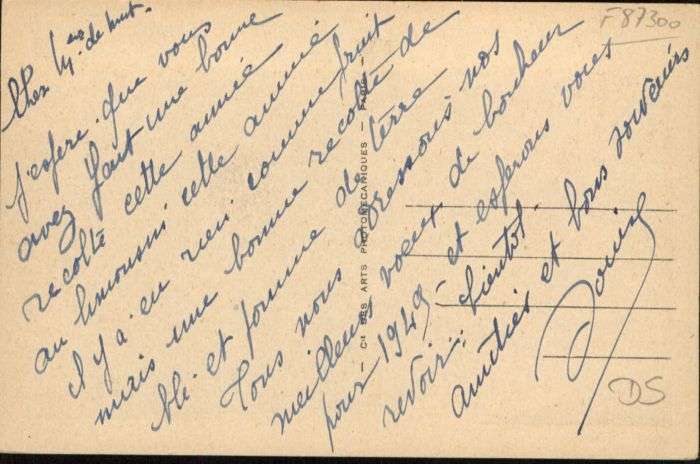 F 87300
Cher
j'espère que vous
avez fait une bonne
recolte cette année
au limousin cette année
il y a eu rien comme fruit
mais une bonne recolte de
blé et pomme de terre
Tous nous adressons nos
meilleurs voeux de bonheur
pour 1949 et esperons vous
revoir bientot.
amitiés et bons souvenirs
Cie DES ARTS PHOTOMECANIQUES
DS